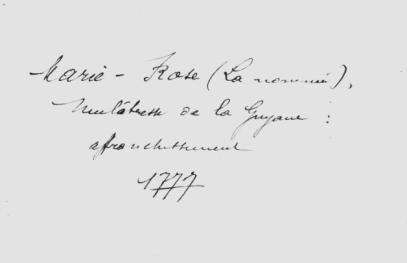 Marie-Rose (La nommée),
Mulâtresse de la Guyane :
affranchissement
1777